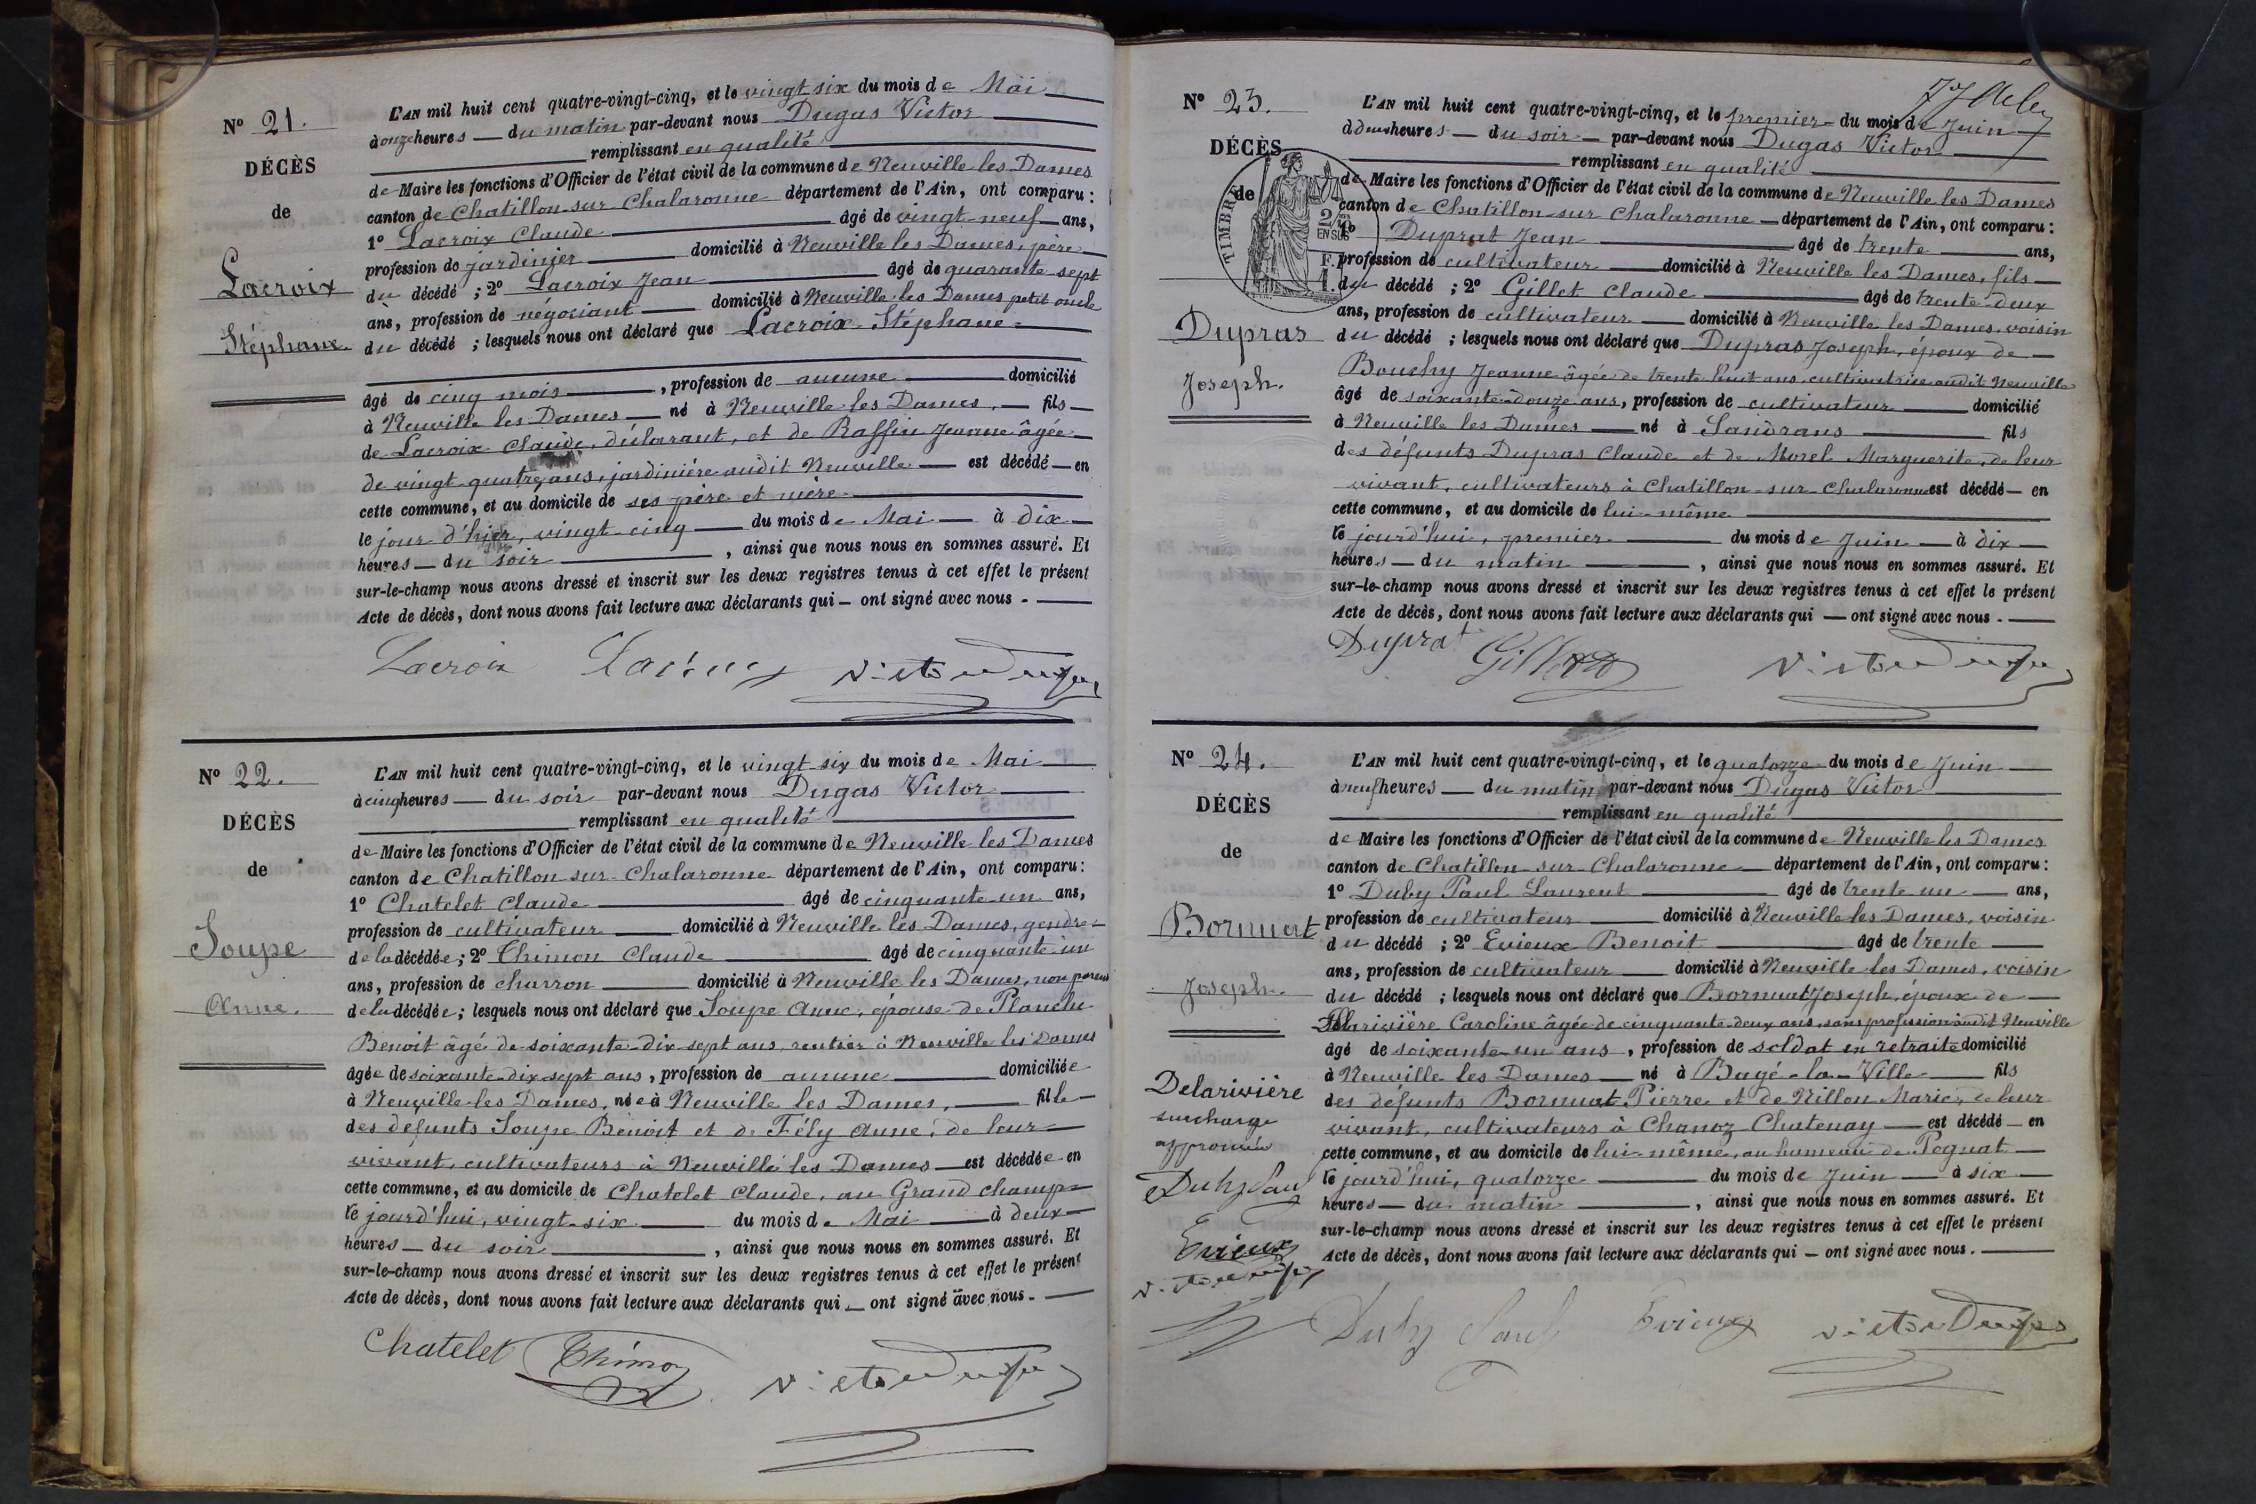 N° 21.
DÉCÈS
de
Lacroix
Stéphane
L'AN mil huit cent quatre-vingt-cinq, et le vingt six du mois de Mai
à onze heures du matin par-devant nous Dugas Victor
remplissant en qualité
de Maire les fonctions d'Officier de l'état civil de la commune de Neuville les Dames
canton de Chatillon sur Chalaronne département de l'Ain, ont comparu :
1° Lacroix Claude âgé de vingt-neuf ans,
profession de jardinier domicilié à Neuville les Dames, père
du décédé ; 2° Lacroix Jean âgé de quarante sept
ans, profession de négociant domicilié à Neuville les Dames petit oncle
du décédé ; lesquels nous ont déclaré que Lacroix Stéphane
âgé de cinq mois, profession de aucune domicilié
à Neuville les Dames né à Neuville les Dames, fils
de Lacroix Claude, déclarant, et de Raffin Jeanne âgée
de vingt quatre ans, jardinière audit Neuville est décédé en
cette commune, et au domicile de ses père et mère
le jour d'hier, vingt cinq du mois de Mai à dix
heures du soir, ainsi que nous nous en sommes assuré. Et
sur-le-champ nous avons dressé et inscrit sur les deux registres tenus à cet effet le présent
Acte de décès, dont nous avons fait lecture aux déclarants qui ont signé avec nous.
Lacroix Lacroix Victor Dugas
N° 22.
DÉCÈS
de
Soupe
Anne.
L'AN mil huit cent quatre-vingt-cinq, et le vingt six du mois de Mai
à cinq heures du soir par-devant nous Dugas Victor
remplissant en qualité
de Maire les fonctions d'Officier de l'état civil de la commune de Neuville les Dames
canton de Chatillon sur Chalaronne département de l'Ain, ont comparu :
1° Chatelet Claude âgé de cinquante un ans,
profession de cultivateur domicilié à Neuville les Dames, gendre
de la décédée ; 2° Thimon Claude âgé de cinquante un
ans, profession de charron domicilié à Neuville les Dames, non parent
de la décédée ; lesquels nous ont déclaré que Soupe Anne, épouse de Planche
Benoit âgé de soixante dix sept ans, rentier à Neuville les Dames
âgée de soixante dix sept ans, profession de aucune domiciliée
à Neuville les Dames, née à Neuville les Dames, fille
des défunts Soupe Benoit et de Fély Anne, de leur
vivant, cultivateurs à Neuville les Dames est décédée en
cette commune, et au domicile de Chatelet Claude, au Grand champ
le jourd'hui, vingt six du mois de Mai à deux
heures du soir, ainsi que nous nous en sommes assuré. Et
sur-le-champ nous avons dressé et inscrit sur les deux registres tenus à cet effet le présent
Acte de décès, dont nous avons fait lecture aux déclarants qui ont signé avec nous.
Chatelet Thimon Victor Dugas
N° 23.
DÉCÈS
de
TIMBRE
2/10 EN SUS
Dupras
Joseph.
L'AN mil huit cent quatre-vingt-cinq, et le premier du mois de Juin
à deux heures du soir par-devant nous Dugas Victor
remplissant en qualité
de Maire les fonctions d'Officier de l'état civil de la commune de Neuville les Dames
canton de Chatillon sur Chalaronne département de l'Ain, ont comparu :
1° Duprat Jean âgé de trente ans,
profession de cultivateur domicilié à Neuville les Dames, fils
du décédé ; 2° Gillet Claude âgé de trente deux
ans, profession de cultivateur domicilié à Neuville les Dames, voisin
du décédé ; lesquels nous ont déclaré que Dupras Joseph, époux de
Bouchy Jeanne âgée de trente huit ans, cultivatrice audit Neuville
âgé de soixante-douze ans, profession de cultivateur domicilié
à Neuville les Dames né à Sandrans fils
des défunts Dupras Claude et de Morel Marguerite, de leur
vivant, cultivateurs à Chatillon-sur-Chalaronne est décédé en
cette commune, et au domicile de lui-même
le jourd'hui, premier du mois de Juin à dix
heures du matin, ainsi que nous nous en sommes assuré. Et
sur-le-champ nous avons dressé et inscrit sur les deux registres tenus à cet effet le présent
Acte de décès, dont nous avons fait lecture aux déclarants qui ont signé avec nous.
Duprat Gillet Victor Dugas
N° 24.
DÉCÈS
de
Bornuat
Joseph.
Delarivière
surcharge
approuvée
Duby Paul
Evieux
Victor Dugas
L'AN mil huit cent quatre-vingt-cinq, et le quatorze du mois de Juin
à neuf heures du matin par-devant nous Dugas Victor
remplissant en qualité
de Maire les fonctions d'Officier de l'état civil de la commune de Neuville les Dames
canton de Chatillon sur Chalaronne département de l'Ain, ont comparu :
1° Duby Paul Laurent âgé de trente un ans,
profession de cultivateur domicilié à Neuville les Dames, voisin
du décédé ; 2° Evieux Benoit âgé de trente
ans, profession de cultivateur domicilié à Neuville les Dames, voisin
du décédé ; lesquels nous ont déclaré que Bornuat Joseph, époux de
Delarivière Caroline âgée de cinquante-deux ans, sans profession audit Neuville
âgé de soixante-un ans, profession de soldat en retraite domicilié
à Neuville les Dames né à Bagé-la-Ville fils
des défunts Bornuat Pierre et de Nillon Marie, de leur
vivant, cultivateurs à Chanoz-Chatenay est décédé en
cette commune, et au domicile de lui-même, au hameau de Pognat
le jourd'hui, quatorze du mois de Juin à six
heures du matin, ainsi que nous nous en sommes assuré. Et
sur-le-champ nous avons dressé et inscrit sur les deux registres tenus à cet effet le présent
Acte de décès, dont nous avons fait lecture aux déclarants qui ont signé avec nous.
Duby Paul Evieux Victor Dugas